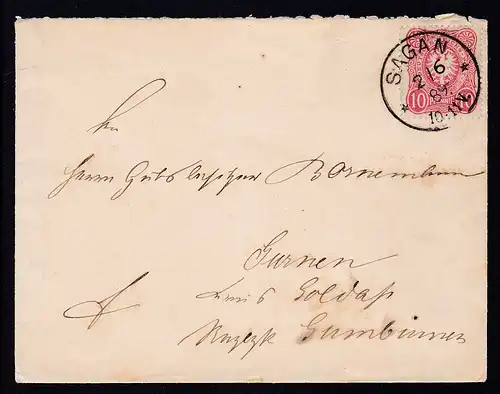 SAGAN
2 16
84
10-11V.
10
An
Herrn Gutsbesitzer Bornemann
Gurnen
Kreis Goldap
Gumbinnen